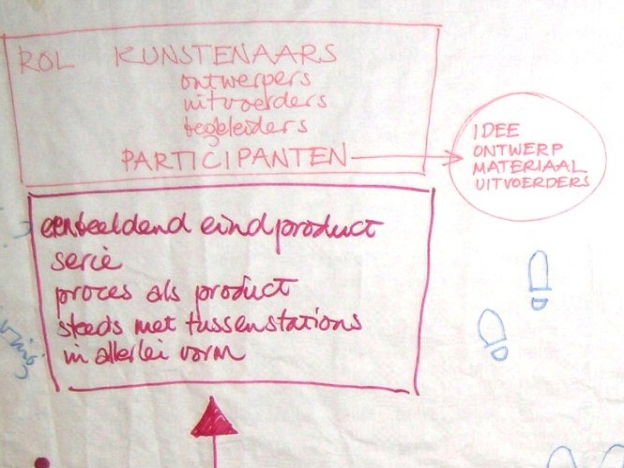 ROL KUNSTENAARS
ontwerpers
uitvoerders
begeleiders
PARTICIPANTEN
IDEE
ONTWERP
MATERIAAL
UITVOERDERS
een beeldend eindproduct
serie
proces als product
steeds met tussenstations
in allerlei vorm